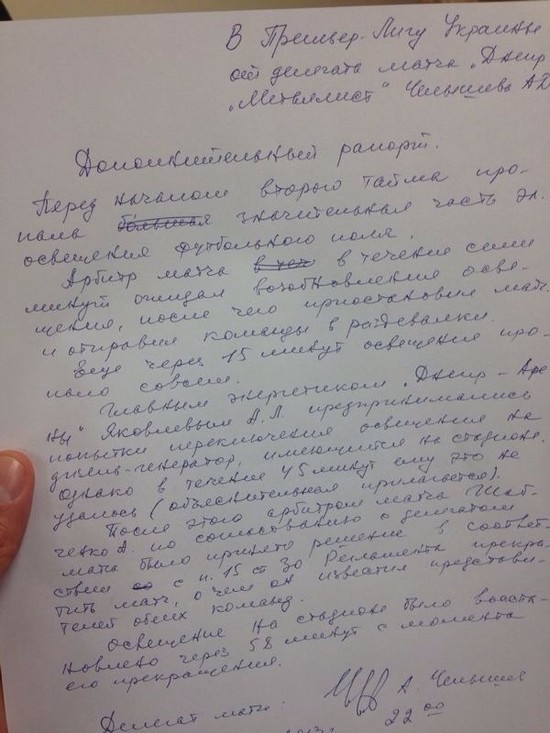 В Премьер-Лигу Украины
от делегата матча „Днепр
„Металлист" Челышева АД
Дополнительный рапорт.
Перед началом второго тайма про-
пала большая значительная часть эл.
освещения футбольного поля.
Арбитр матча в теч в течение семи
минут ожидал возобновления осве-
щения, после чего приостановил матч
и отправил команды в раздевалки.
Еще через 15 минут освещение про-
пало совсем.
Главным энергетиком „Днепр-Аре
ны" Яковлевым А.Л. предпринимались
попытки переключения освещения на
дизель-генератор, имеющийся на стадионе.
Однако в течение 45 минут ему это не
удалось (объяснительная прилагается).
После этого арбитром матча Шаб-
ченко А. по согласованию с делегатом
матча было принято решение в соответ-
ствии с п. 15 ст 30 Регламента прекра-
тить матч, о чем он известил представи-
телей обеих команд.
Освещение на стадионе было восста-
новлено через 58 минут с момента
его прекращения.
А. Челышев
Делегат матча
22 00